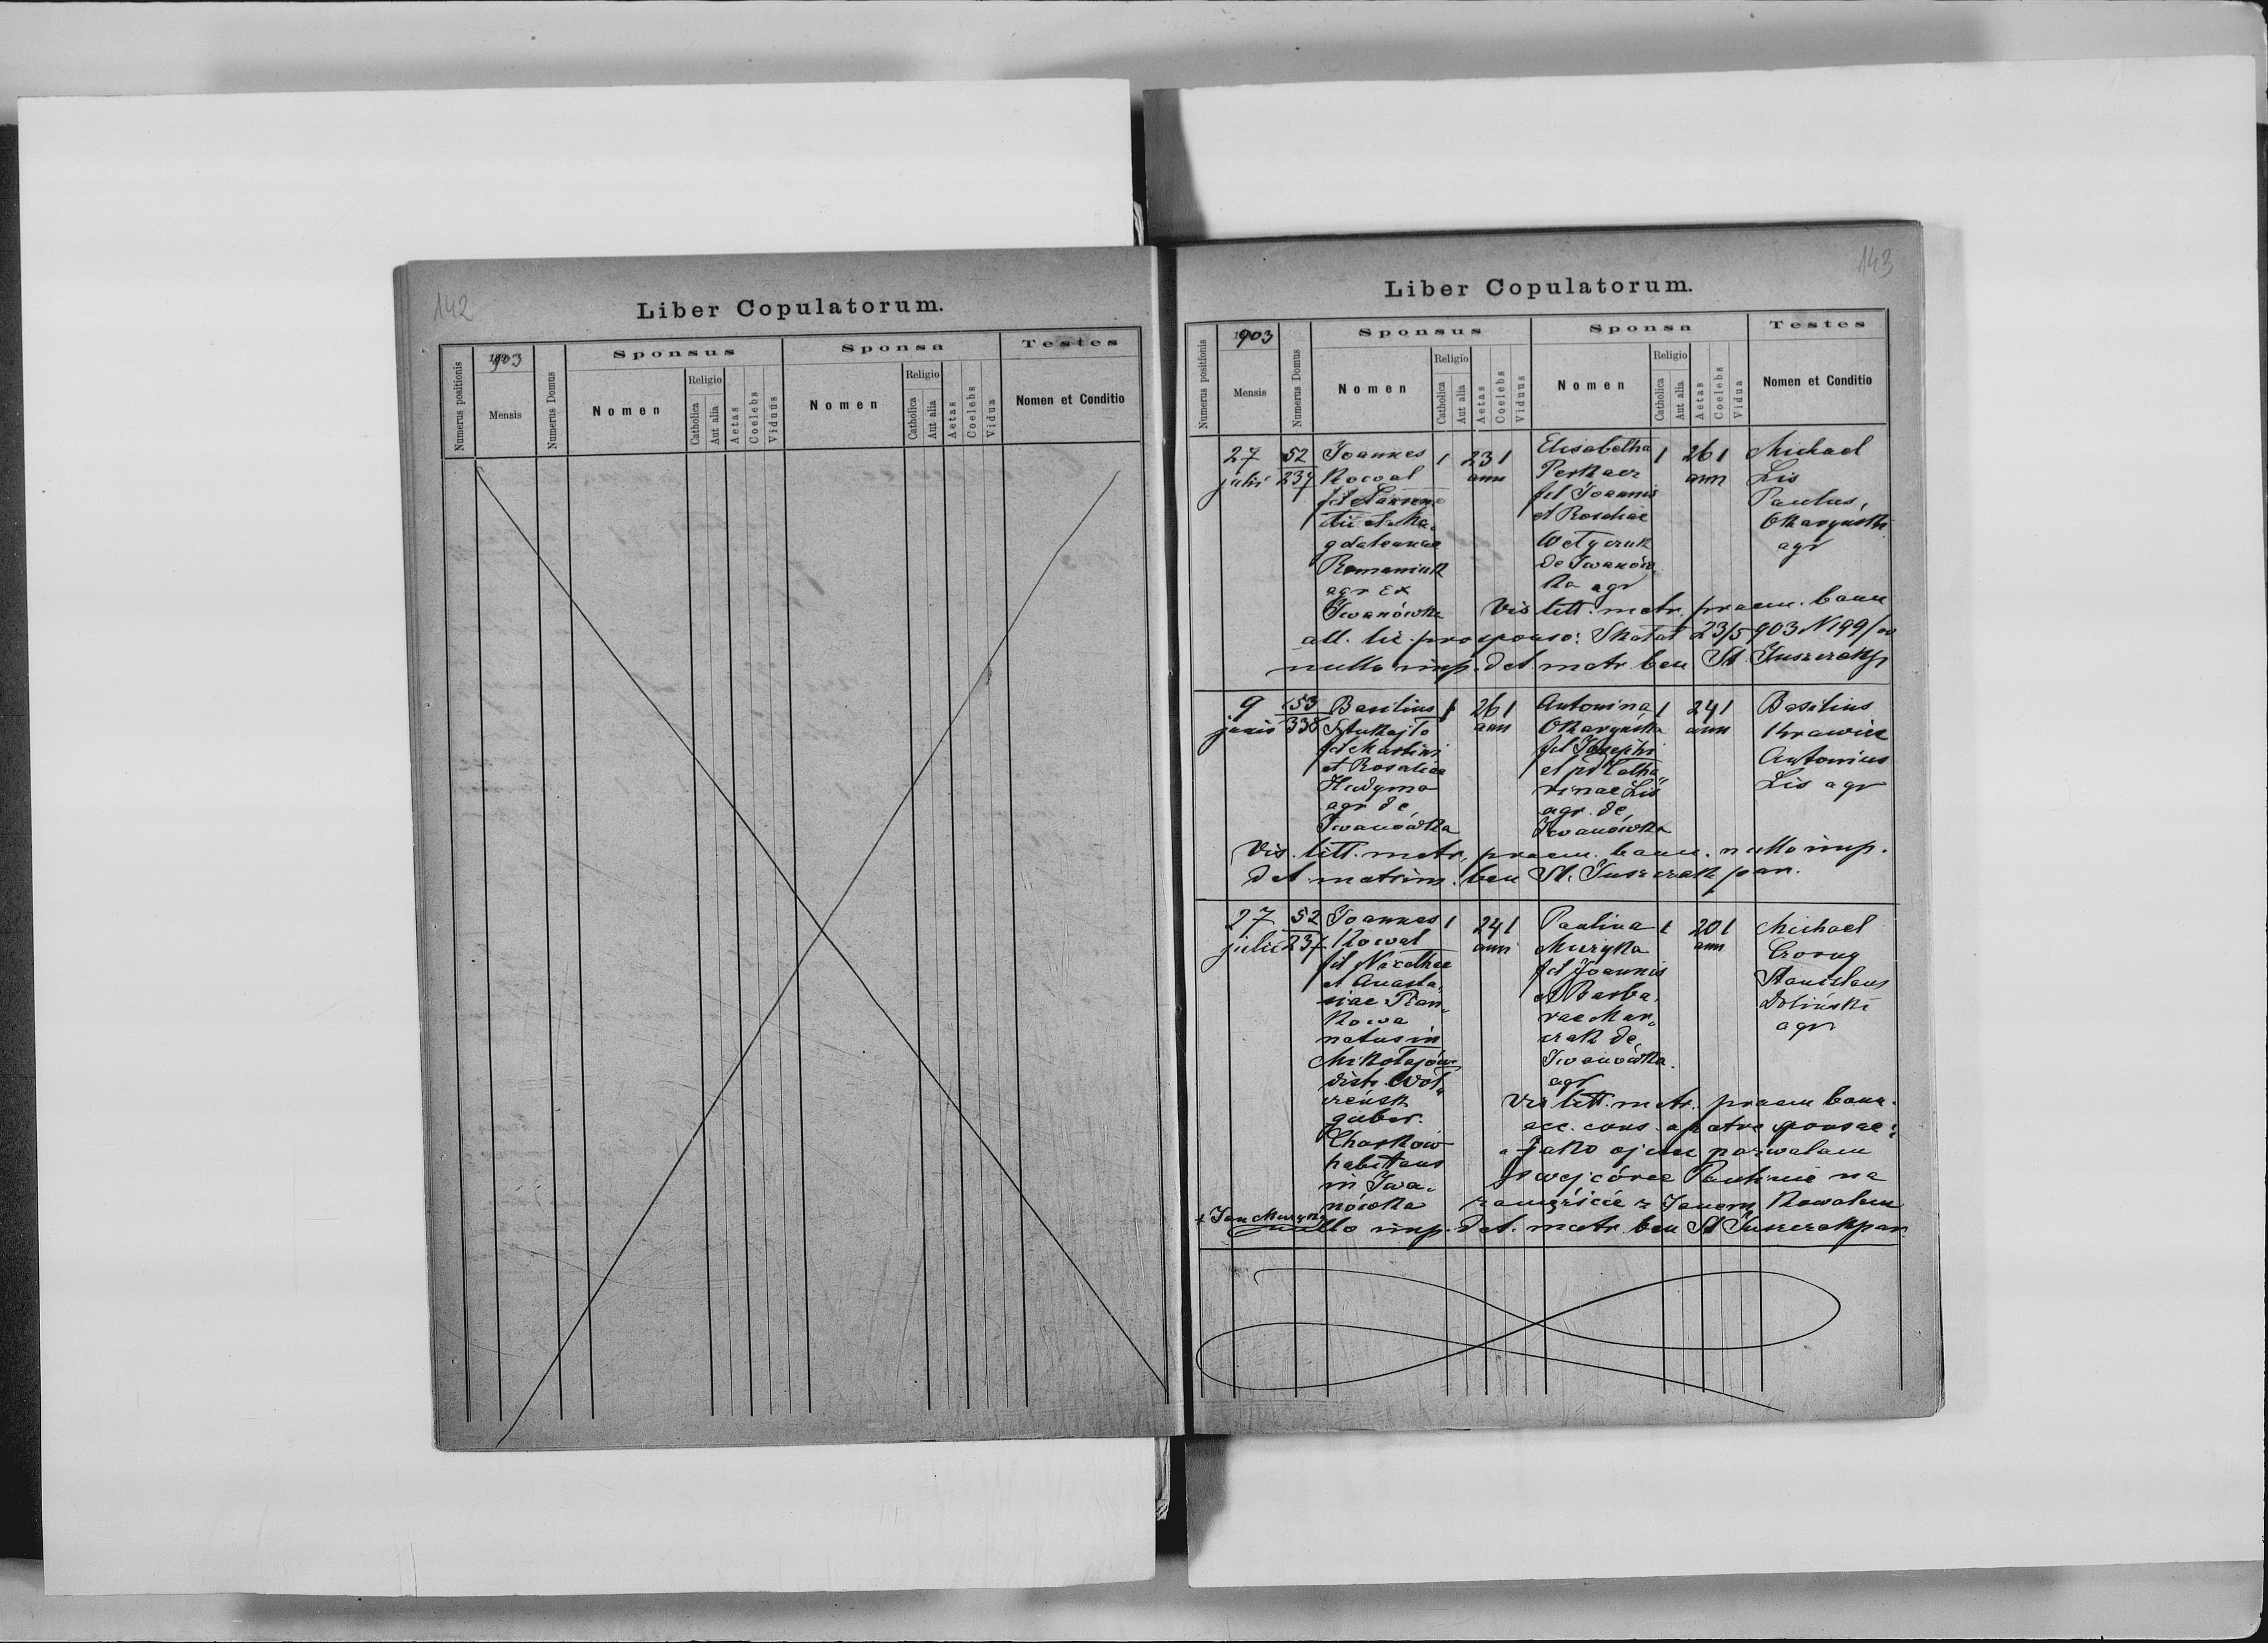 142
Liber Copulatorum.
Numerus positionis
1903
Mensis
Numerus Domus
Sponsus
Nomen
Religio
Catholica
Aut alia
Aetas
Coelebs
Viduus
Sponsa
Nomen
Religio
Catholica
Aut alia
Aetas
Coelebs
Vidua
Testes
Nomen et Conditio
143
Liber Copulatorum.
Numerus positionis
1903
Mensis
Numerus Domus
Sponsus
Nomen
Religio
Catholica
Aut alia
Aetas
Coelebs
Viduus
Sponsa
Nomen
Religio
Catholica
Aut alia
Aetas
Coelebs
Vidua
Testes
Nomen et Conditio
27
julii
52
237
Joannes
Kowal
fil Lauren
tii et Ma„
gdalenae
Romaniuk
agr ex
Iwanówka
1
23 1
ann
Elisabetha
fil Joannis
et Rosaliae
de Iwanów
ka agr
1
26 1
ann
Michael
Lis
Paulus
Okaryński
agr
Vis litt. metr. praem. bann
all. lic. pro sponso: Skałat 23/5 903 N 199/
nullo imp. det matr. ben St. Juszczak p
9
junii
53
338
Basilius
fil Martini
et Rosaliae
Hudyma
agr de
Iwanówka
1
26 1
ann
Antonina
Okaryńska
fil Josephi
et Catha„
rinae Lis
agr. de
Iwanówka
1
24 1
ann
Basilius
Krawiec
Antonius
Lis agr
Vis. litt. metr. praem. bann. nullo imp.
det matrim. ben St. Juszczak par.
27
julii
52
237
Joannes
Kowal
fil
et Anasta„
siae
kowa
natus in
Mikołajów
distr. Woł„
czeńsk
guber.
Charków
habitans
in Iwa„
nówka
1
24 1
ann
Paulina
Muzyka
fil Joannis
et Barba„
rae Mar„
czak de
Iwanówka
agr
1
20 1
ann
Michael
Stanislaus
Doliński
agr
Vis litt. metr. praem bann.
acc. cons. a patre sponsae:
„jako ojciec pozwalam
swej córce Paulinie na
zamęźcie z Janem Kowalem
+ Jan Muzyka
nullo imp. det. matr. ben St Juszczak par.